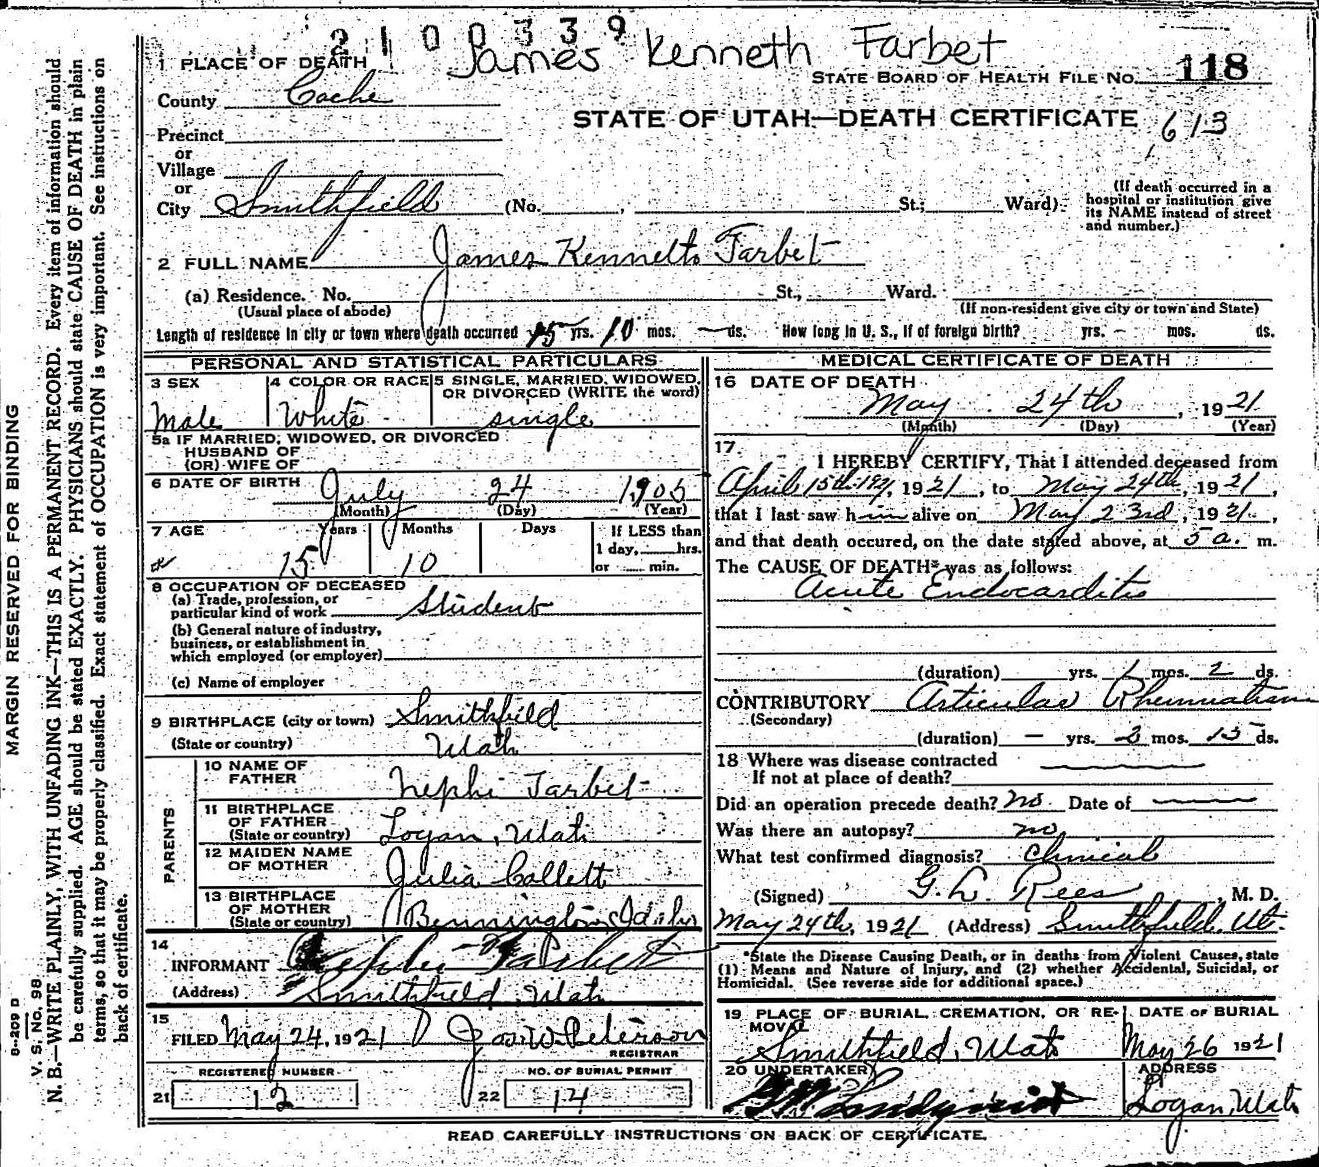 2100339
James Kenneth Tarbet
1 PLACE OF DEATH
STATE BOARD OF HEALTH FILE No. 118
County Cache
STATE OF UTAH—DEATH CERTIFICATE 613
Precinct
or
Village
or
City Smithfield (No. , St.; Ward)
(If death occurred in a hospital or institution give its NAME instead of street and number.)
2 FULL NAME James Kenneth Tarbet
(a) Residence. No. St., Ward.
(Usual place of abode) (If non-resident give city or town and State)
Length of residence in city or town where death occurred 15 yrs. 10 mos. — ds. How long in U. S., if of foreign birth? yrs. - mos. ds.
PERSONAL AND STATISTICAL PARTICULARS
3 SEX
Male
4 COLOR OR RACE
White
5 SINGLE, MARRIED, WIDOWED,
OR DIVORCED (WRITE the word)
single
5a IF MARRIED, WIDOWED, OR DIVORCED
HUSBAND OF
(OR) WIFE OF
6 DATE OF BIRTH July 24 1905
(Month) (Day) (Year)
7 AGE Years Months Days
15 10
If LESS than
1 day, hrs.
or min.
8 OCCUPATION OF DECEASED
(a) Trade, profession, or
particular kind of work Student
(b) General nature of industry,
business, or establishment in
which employed (or employer)
(c) Name of employer
9 BIRTHPLACE (city or town) Smithfield
(State or country) Utah
PARENTS
10 NAME OF
FATHER Nephi Tarbet
11 BIRTHPLACE
OF FATHER
(State or country) Logan, Utah
12 MAIDEN NAME
OF MOTHER Julia Collett
13 BIRTHPLACE
OF MOTHER
(State or country) Bennington, Idaho
14
INFORMANT Nephi Tarbet
(Address) Smithfield, Utah
15
FILED May 24, 1921 Jas. W. Peterson
REGISTRAR
REGISTERED NUMBER
21 12
NO. OF BURIAL PERMIT
22 14
MEDICAL CERTIFICATE OF DEATH
16 DATE OF DEATH
May 24th, 1921
(Month) (Day) (Year)
17
I HEREBY CERTIFY, That I attended deceased from
April 15th, 1921, to May 24th, 1921,
that I last saw him alive on May 23rd, 1921,
and that death occured, on the date stated above, at 5 a. m.
The CAUSE OF DEATH* was as follows:
Acute Endocarditis
(duration) yrs. 1 mos. 2 ds.
CONTRIBUTORY Articular Rheumatism
(Secondary)
(duration) — yrs. 3 mos. 15 ds.
18 Where was disease contracted
If not at place of death?
Did an operation precede death? no Date of
Was there an autopsy? no
What test confirmed diagnosis? Clinical
(Signed) G. L. Rees M. D.
May 24th, 1921 (Address) Smithfield, Ut.
*State the Disease Causing Death, or in deaths from Violent Causes, state
(1) Means and Nature of Injury, and (2) whether Accidental, Suicidal, or
Homicidal. (See reverse side for additional space.)
19 PLACE OF BURIAL, CREMATION, OR RE-
MOVAL
Smithfield, Utah
DATE OF BURIAL
May 26 1921
20 UNDERTAKER
Lindquist
ADDRESS
Logan, Utah
READ CAREFULLY INSTRUCTIONS ON BACK OF CERTIFICATE.
MARGIN RESERVED FOR BINDING
8—209 D
V. S. No. 98
N. B.—WRITE PLAINLY, WITH UNFADING INK—THIS IS A PERMANENT RECORD. Every item of information should
be carefully supplied. AGE should be stated EXACTLY. PHYSICIANS should state CAUSE OF DEATH in plain
terms, so that it may be properly classified. Exact statement of OCCUPATION is very important. See instructions on
back of certificate.